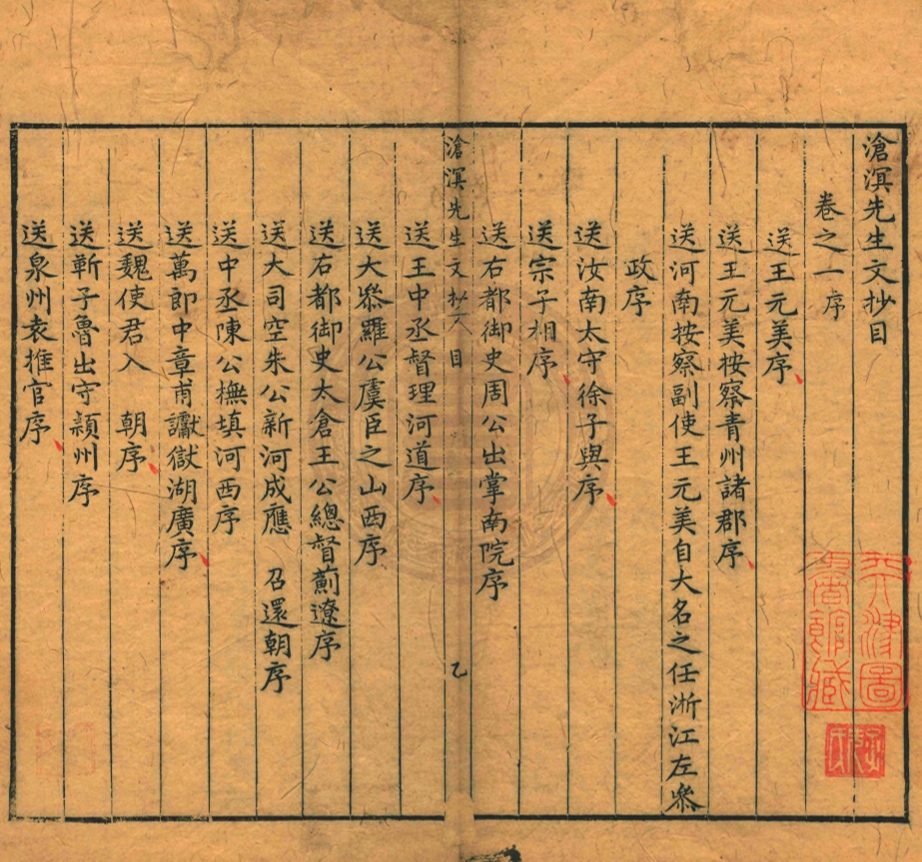 滄溟先生文抄目
卷之一序
送王元美序
送王元美按察青州諸郡序
送河南按察副使王元美自大名之任淅江左叅
政序
送汝南太守徐子與序
送宗子相序
送右都御史周公出掌南院序
滄溟先生文抄 目
乙
送王中丞督理河道序
送大叅羅公虞臣之山西序
送右都御史太倉王公總督薊遼序
送大司空朱公新河成應 召還朝序
送中丞陳公橅填河西序
送萬郎中章甫讞獄湖廣序
送魏使君入 朝序
送靳子魯出守潁州序
送泉州袁推官序